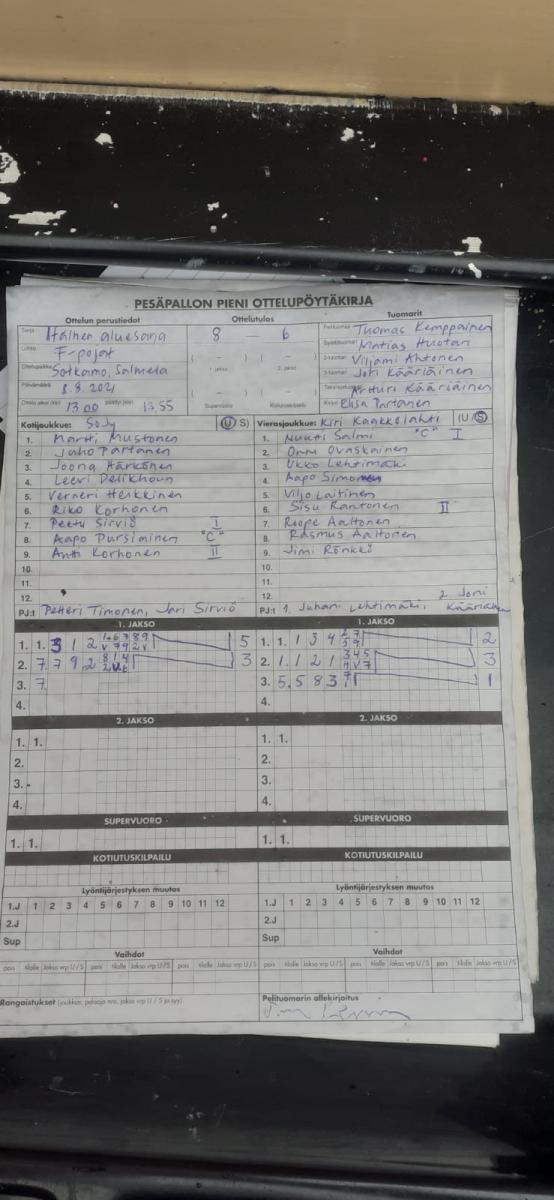 PESÄPALLON PIENI OTTELUPÖYTÄKIRJA
Ottelun perustiedot Ottelutulos Tuomarit
Sarja Itäinen aluesarja 8 - 6 Pelituomari Tuomas Kemppainen
Lohko F-pojat ( - ) ( - ) Syöttötuomari Matias Huotari
Ottelupaikka Sotkamo, Salmela 1. jakso 2. jakso 2-tuomari Viljami Ahtonen
3-tuomari Joti Kääriäinen
Päivämäärä 8.8.2021 ( - ) ( - ) Takarajatuomari Artturi Kääriäinen
Ottelu alkoi (klo) 13.00 päättyi (klo) 13,55 Supervuoro Kotiutuskilpailu Kirjuri Elisa Partanen
Kotijoukkue: SoJy (U S) Vierasjoukkue: Kiri Kaakkolahti (U/S)
1. Martti Mustonen 1. Nuutti Salmi "C" I
2. Juho Partanen 2. Onni Ovaskainen
3. Joona Härkönen 3. Ukko Lehtimäki
4. Leevi 4. Aapo Simonen
5. Verneri Heikkinen 5. Viljo Laitinen
6. Riko Korhonen 6. Sisu Rantonen II
7. Peetu Sirviö I 7. Roope Aaltonen
8. Aapo Pursiainen "C" 8. Rasmus Aaltonen
9. Antti Korhonen II 9. Jimi Rönkkö
10. 10.
11. 11.
12. 12. 2. Joni
PJ:t Petteri Timonen, Jari Sirviö PJ:t 1. Juhani Lehtimäki, Kääriäinen
1. JAKSO 1. JAKSO
1. 1. 3 1 2 5 1. 1. 1 3 4 2
2. 7. 7 9 2 3 2. 1. 1 2 1 3
3. 7. 3. 5. 5 8 3 1
4. 4.
2. JAKSO 2. JAKSO
1. 1. 1. 1.
2. 2.
3. 3.
4. 4.
SUPERVUORO SUPERVUORO
1. 1. 1. 1.
KOTIUTUSKILPAILU KOTIUTUSKILPAILU
Lyöntijärjestyksen muutos Lyöntijärjestyksen muutos
1.J 1 2 3 4 5 6 7 8 9 10 11 12 1.J 1 2 3 4 5 6 7 8 9 10 11 12
2.J 2.J
Sup Sup
Vaihdot Vaihdot
pois tilalle Jakso vrp U/S pois tilalle Jakso vrp U/S pois tilalle Jakso vrp U/S pois tilalle Jakso vrp U/S pois tilalle Jakso vrp U/S pois tilalle Jakso vrp U/S
Rangaistukset (joukkue, pelaaja nro, jakso vrp U / S ja syy) Pelituomarin allekirjoitus